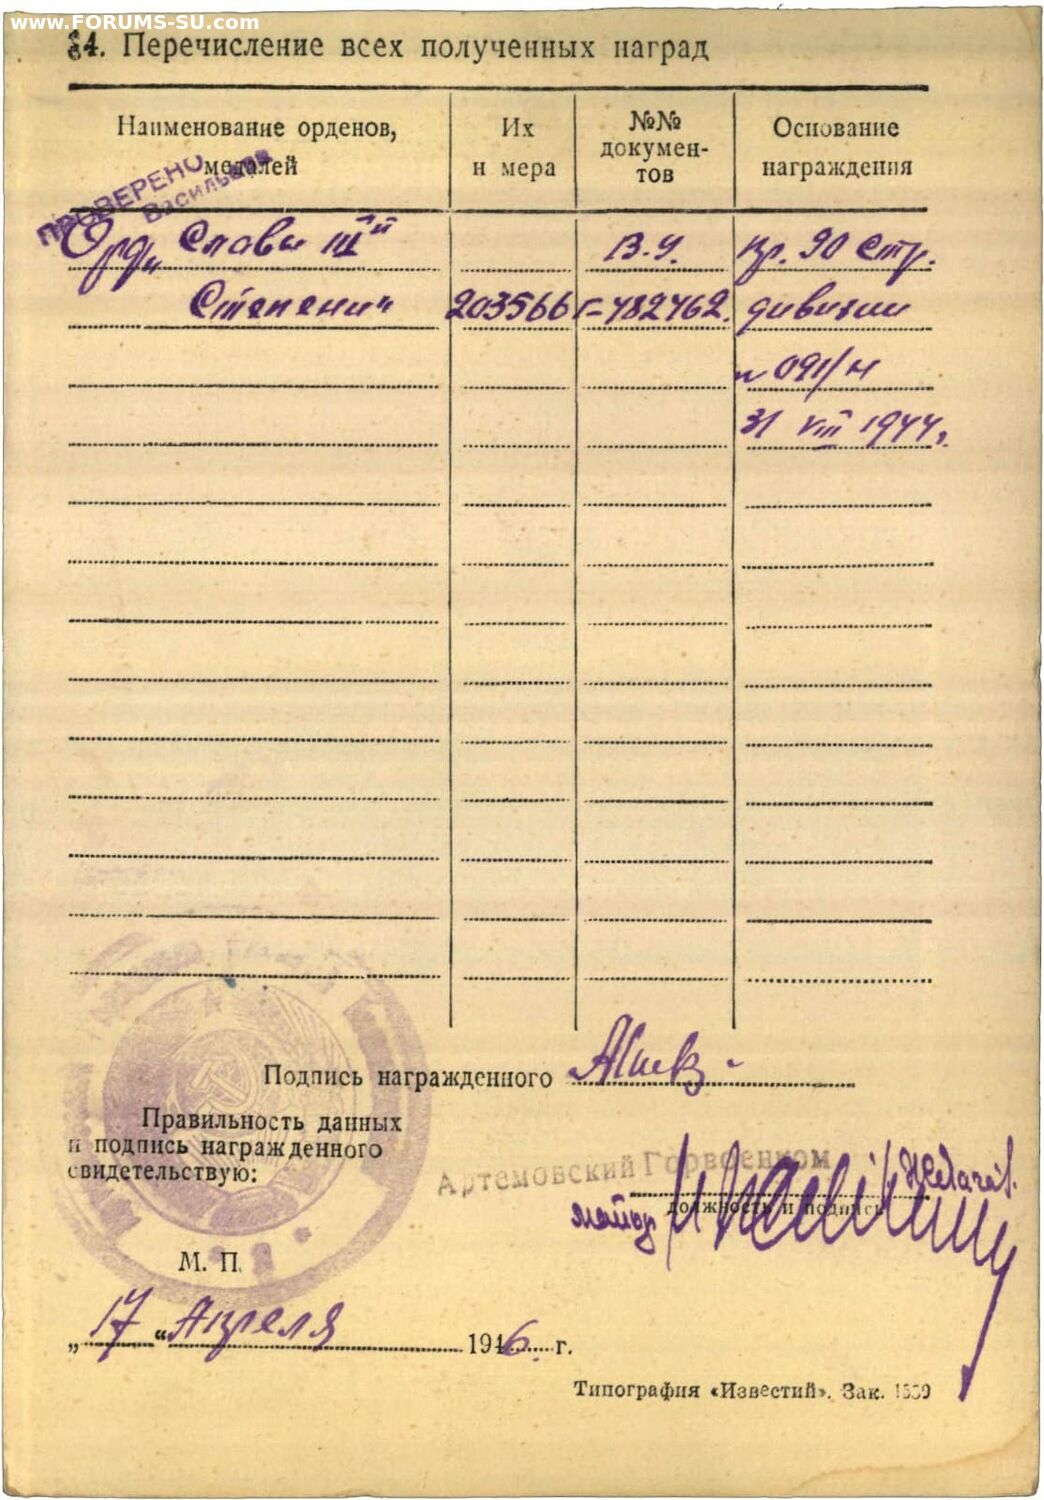 www.FORUMS-SU.com
34. Перечисление всех полученных наград
Наименование орденов, медалей
Их н мера
№№ докумен-тов
Основание награждения
ПРОВЕРЕНО
Орд. „Славы III й
В.У.
пр. 90 Стр.
Степени"
203566
Г-482462.
дивизии
№ 091/н
31 VIII 1944г.
Подпись награжденного
Правильность данных
и подпись награжденного
свидетельствую:
Артемовский Горвоенком
должность и подпись
майор
М. П.
„17" Апреля 1946 г.
Типография «Известий». Зак.